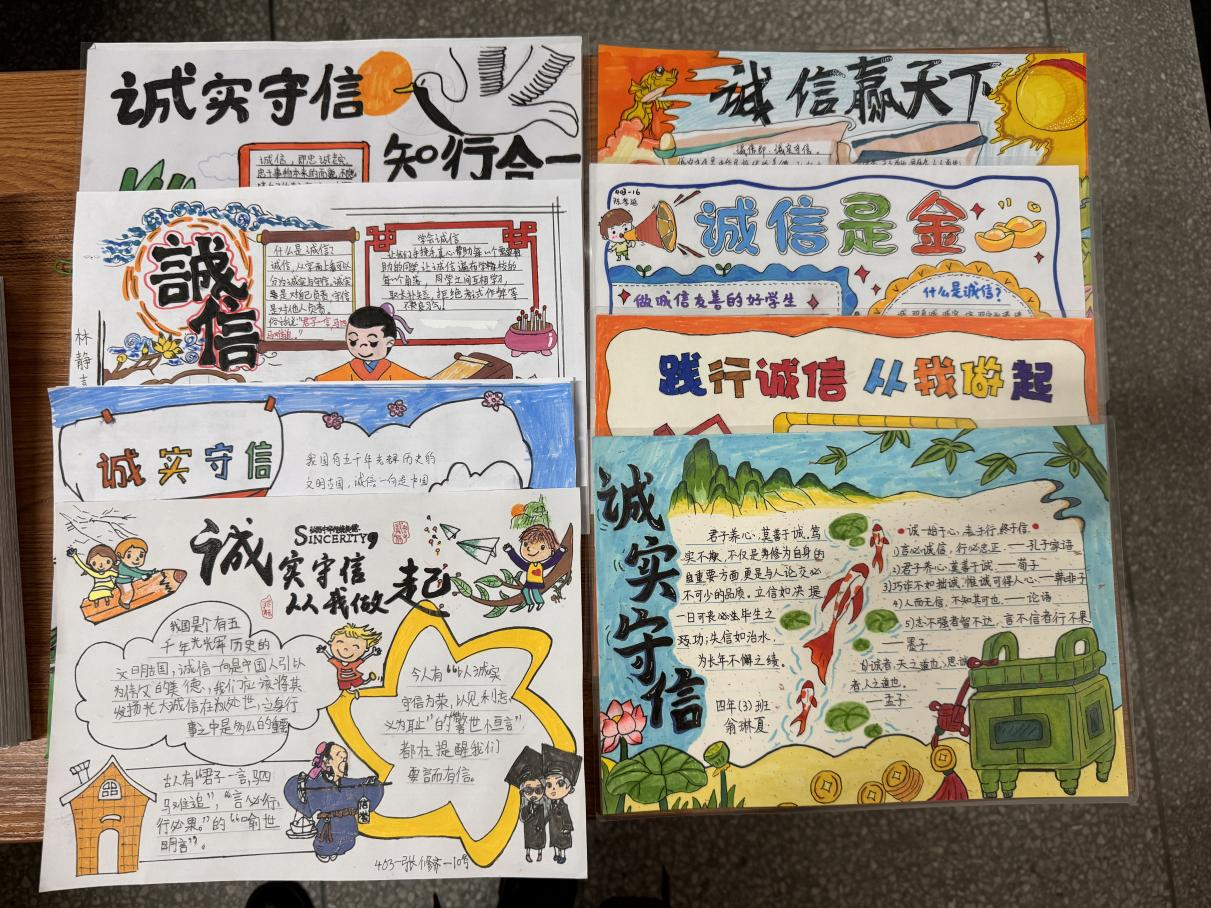 诚实守信
知行合一
诚信，即忠诚老实，
忠于事物本来的面貌，不隐
誠信
什么是诚信？
诚信，从字面上看可以
分为诚实与守信，诚实
是对自己负责，守信
是对他人负责。
俗话说"君子一言，驷
学会诚信
让我们手挽手，真心帮助每一个需要帮
助的同学，让诚信遍布学校的
每一个角落，同学之间互相学习，
取长补短，拒绝考试作弊等
不良习气。
林静
诚实守信
我国有五千年光辉历史的
文明古国，诚信一向是中国
SINCERITY
诚实守信
从我做起
我国是个有五
千年光光辉历史的
文明古国，诚信一向是中国人引以
为传文的美德，我们应该将其
发扬光大诚信在为处世，立身行
事之中是多么的重要
古人有"君子一言，驷
马难追"，"言必行，
行必果。"的"喻世
明言"。
今人有"以诚实
守信为荣，以见利忘
义为耻"的"警世恒言"
都在提醒我们
要言而有信。
诚信赢天下
诚信即：诚实守信。
403-16
诚信是金
做诚信友善的好学生
什么是诚信？
践行诚信 从我做起
诚实守信
君子养心，莫善于诚，笃
实不欺，不仅是秀修为自身的
自重要方面更是与人论交必
不可少的品质。立信如决堤
一日可丧必生毕生之
功；失信如治水，
为长年不懈之绩。
四年(3)班
翁琳夏
诚—始于心，表于行，终于信。
1)言必诚信，行必忠正。——孔子家语
2)君子养心，莫善于诚。——荀子
3)巧诈不如拙诚，惟诚可得人心。——韩非子
4)人而无信，不知其可也。——论语
5)志不强者智不达，言不信者行不果
——墨子
6)诚者，天之道也，思诚
者，人之道也
——孟子